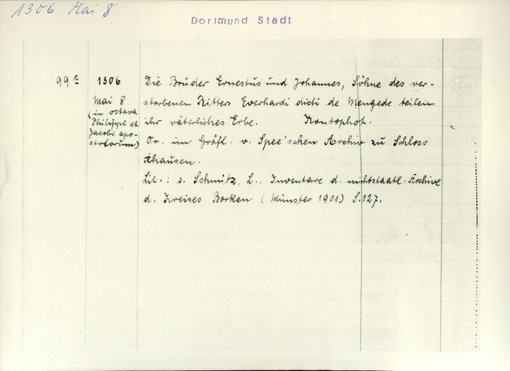 1306 Mai 8
Dortmund Stadt
99a 1306 Die Brüder Ernestus und Johannes, Söhne des ver-
Mai 8 storbenen Ritters Everhardi dicti de Mengede teilen
(in octava ihr väterliches Erbe. Kontophot.
Philippi et
Jacobi apo- Or. im Gräfl. v. Spee'schen Archiv zu Schloss
stolorum) Ahausen.
Lit.: s. Schmitz, L., Inventare d. nichtstaatl. Archive
d. Kreises Borken (Münster 1901) S. 127.